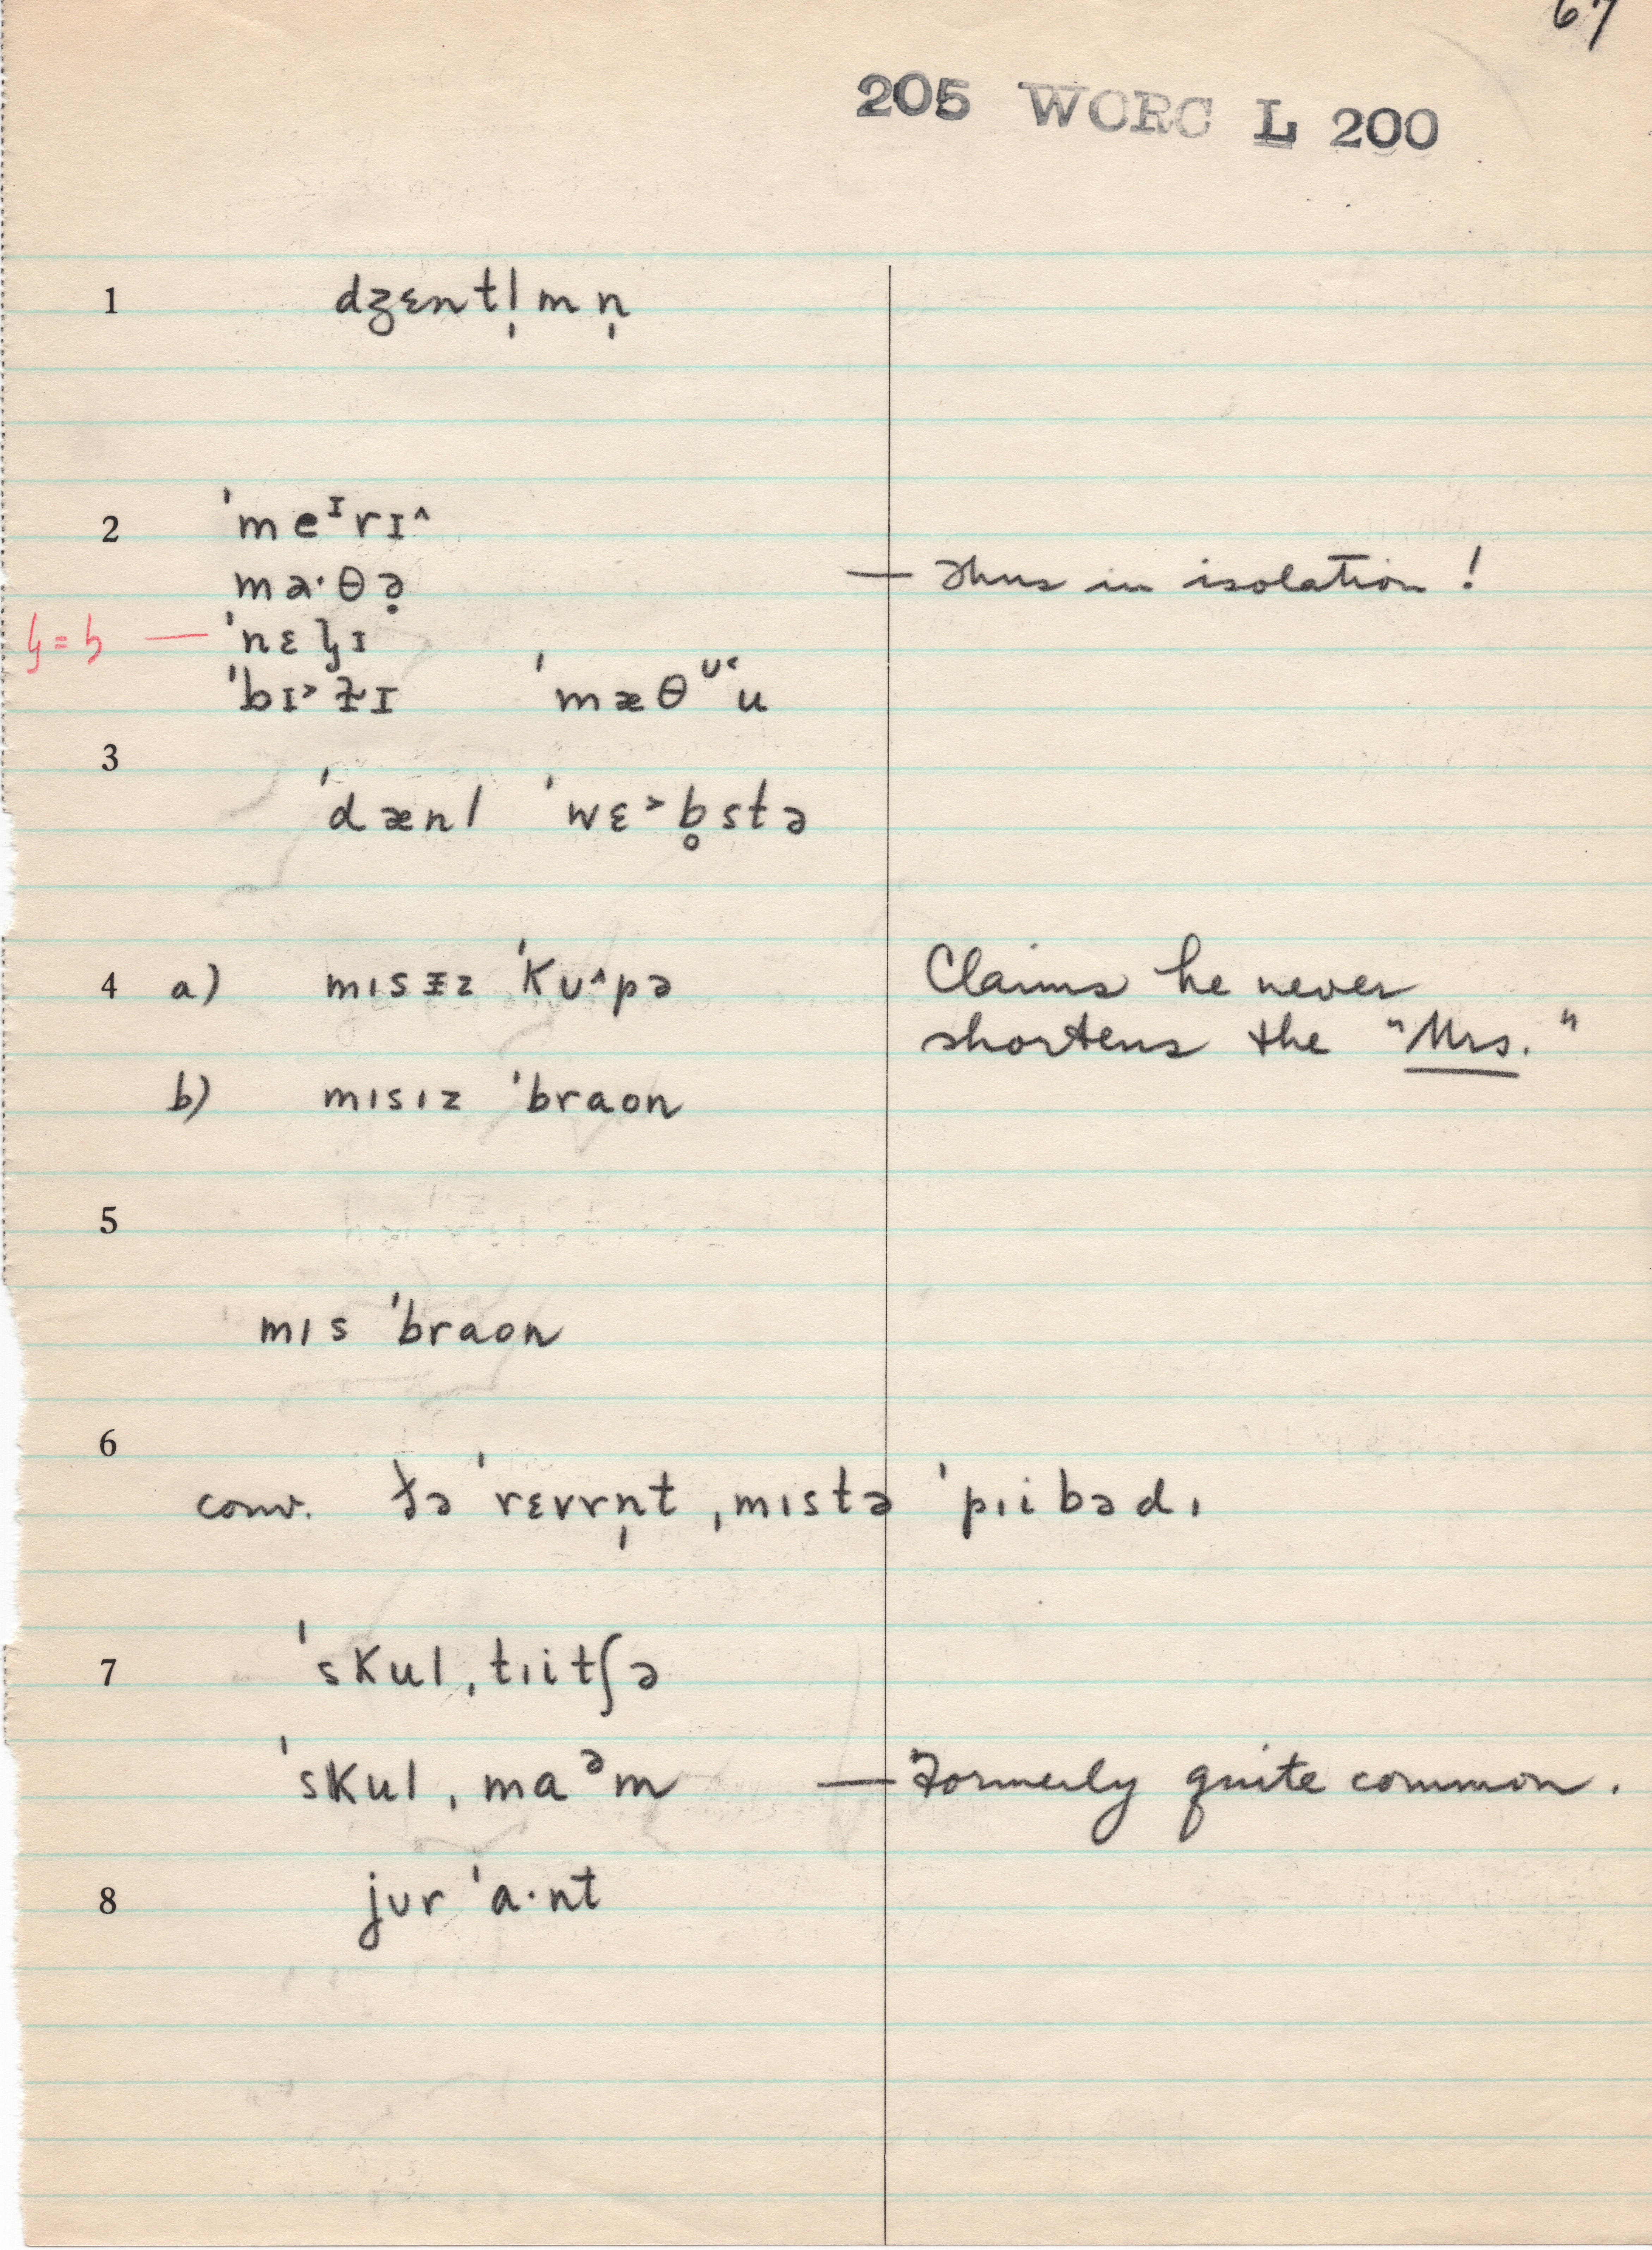 67
205 WORC L 200
1 dʒɛntl̩mn̩
2 ˈmeᶦrɪ^
ma·θə̣ — Thus in isolation!
ˈbɪ˃ƚɪ ˈmæθᶷ˂u
3
ˈdænl ˈwɛ˃b̥stə
4 a) mɪsɪz ˈkʊ^pə Claims he never
shortens the "Mrs."
b) mɪsɪz ˈbraon
5
mɪs ˈbraon
6
conv. ðə ˈrɛvrn̩t ˌmɪstə ˈpɪibədɪ
7 ˈskulˌtɪitʃə
ˈskulˌmaᵊm — Formerly quite common.
8 jʊr ˈa·nt